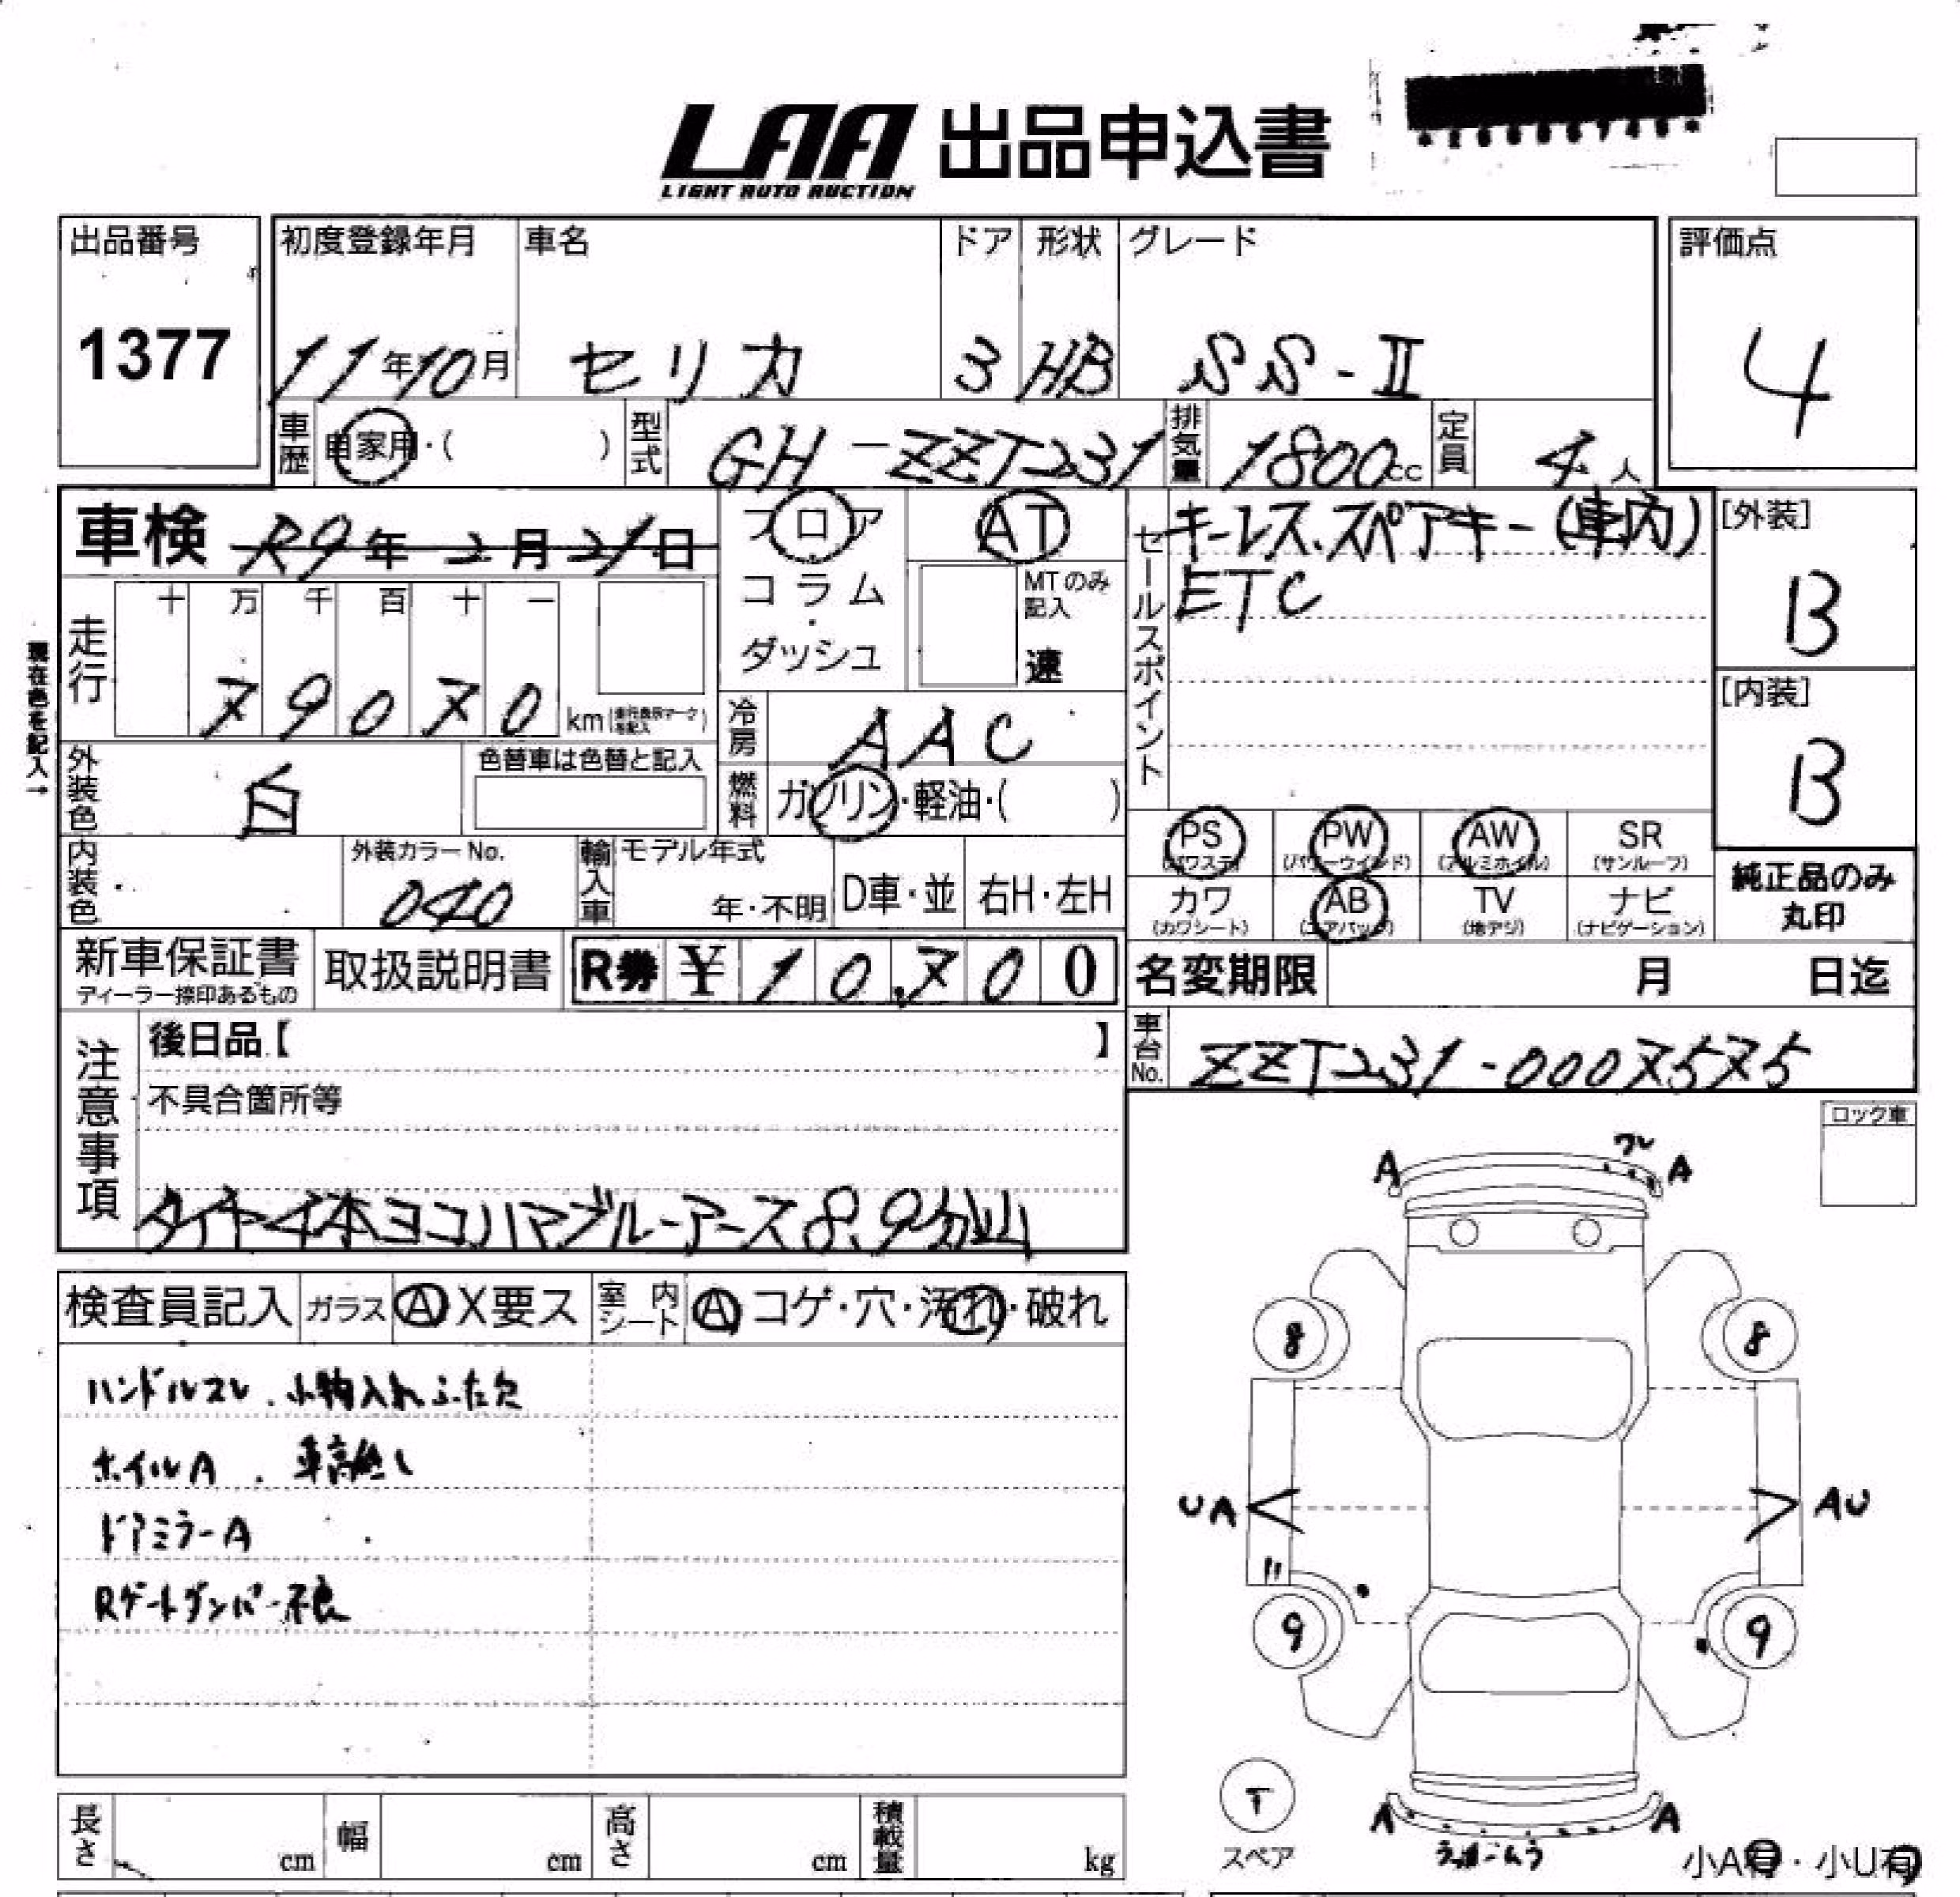 LAA 出品申込書
LIGHT AUTO AUCTION
出品番号 初度登録年月 車名 ドア 形状 グレード 評価点
1377 11年10月 セリカ 3 HB SS-Ⅱ 4
車歴 自家用・( ) 型式 GH-ZZT231 排気量 1800cc 定員 4人
車検 R9年2月21日 フロア AT セールスポイント キーレス、スペアキー(車内) [外装]
コラム MTのみ記入 ETC B
・
ダッシュ 速
現在色を記入→
走行 十 万 千 百 十 一
79070 km(走行表示マークを記入)
冷房 AAC [内装]
外装色 白 色替車は色替と記入 燃料 ガソリン・軽油・( ) B
PS (パワステ) PW (パワーウインド) AW (アルミホイル) SR (サンルーフ)
内装色 外装カラーNo. 040 輸入車 モデル年式 年・不明 D車・並 右H・左H
カワ (カワシート) AB (エアバッグ) TV (地デジ) ナビ (ナビゲーション) 純正品のみ丸印
新車保証書 ディーラー捺印あるもの 取扱説明書 R券 ¥ 10,700 名変期限 月 日迄
注意事項 後日品【 】 車台No. ZZT231-0007575
不具合箇所等 ロック車
タイヤ4本ヨコハマブルーアース8、9分山
検査員記入 ガラス A X 要ス 室内シート A コゲ・穴・汚れ・破れ
ハンドルスレ、小物入れふた欠
ホイルA、車高無し
ドアミラーA
Rゲートダンパー不良
A A
8 8
UA AU
9 9
T
スペア
A A
小A有・小U有
長さ cm 幅 cm 高さ cm 積載量 kg